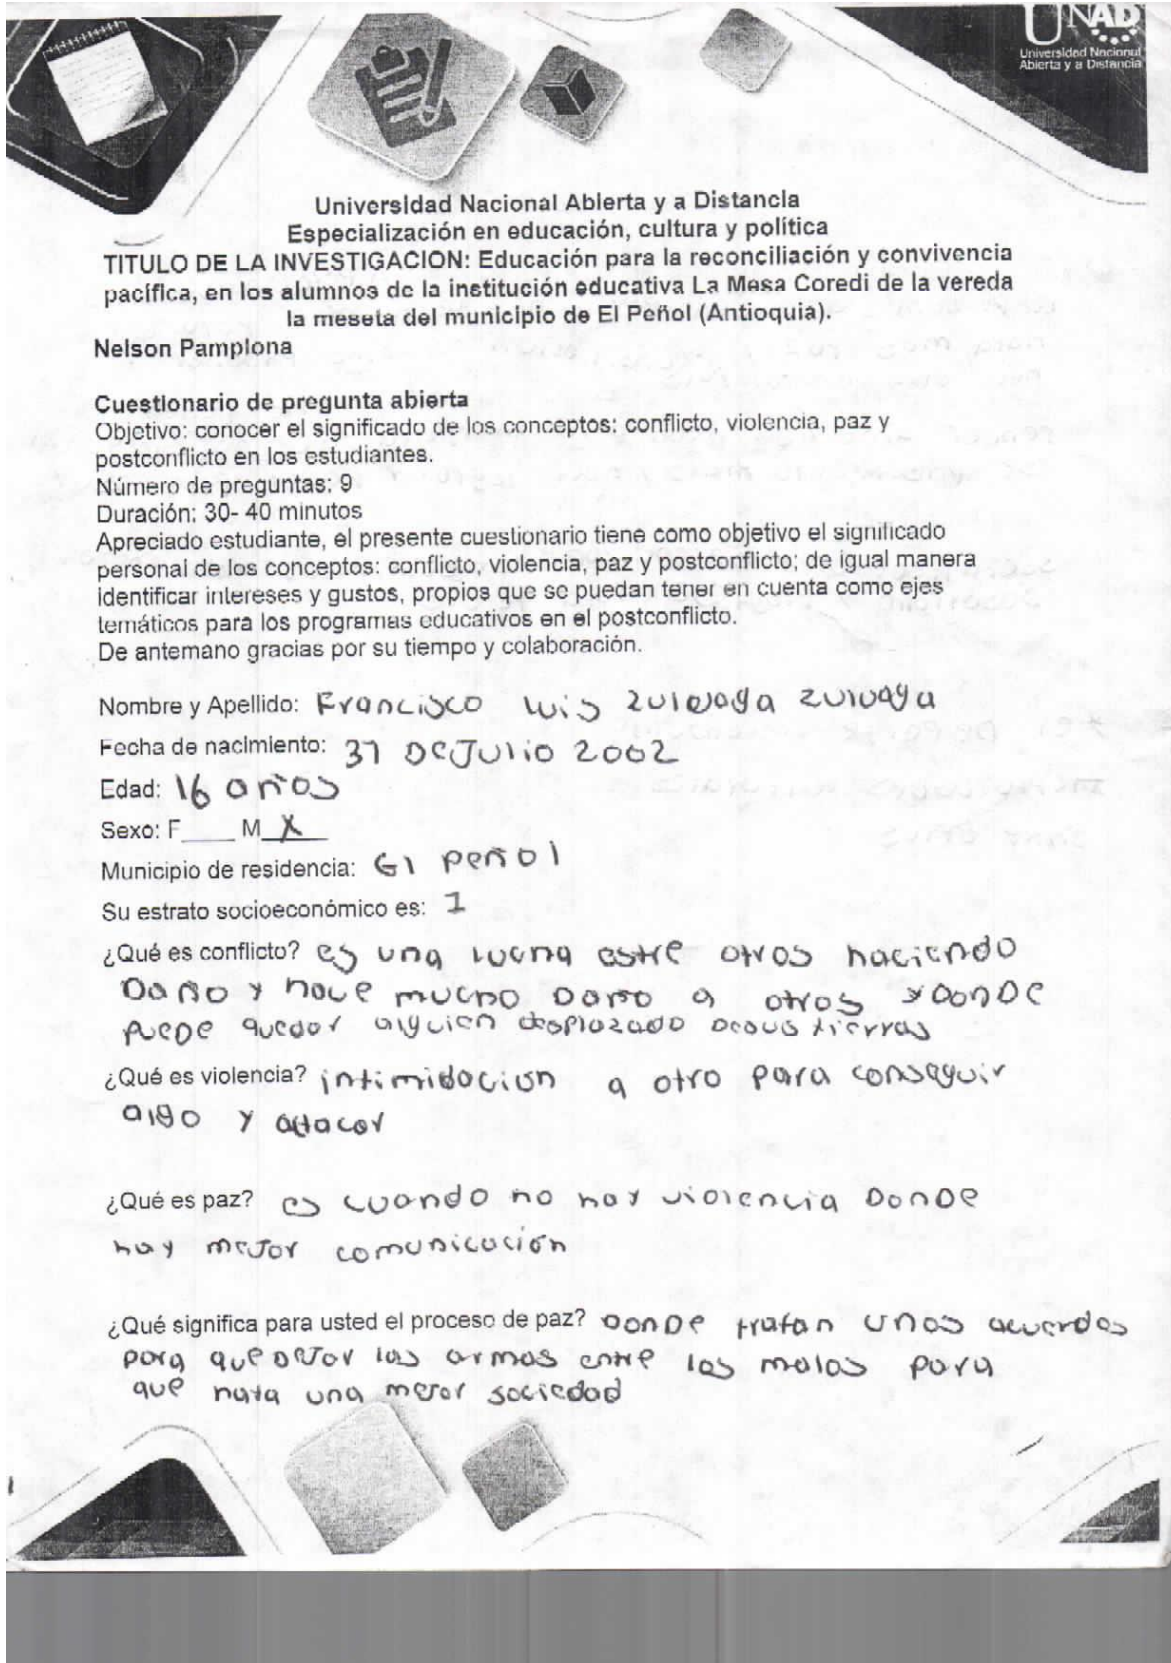 UNAD
Universidad Nacional
Abierta y a Distancia
Universidad Nacional Abierta y a Distancia
Especialización en educación, cultura y política
TITULO DE LA INVESTIGACION: Educación para la reconciliación y convivencia
pacífica, en los alumnos de la institución educativa La Mesa Coredi de la vereda
la meseta del municipio de El Peñol (Antioquia).
Nelson Pamplona
Cuestionario de pregunta abierta
Objetivo: conocer el significado de los conceptos: conflicto, violencia, paz y
postconflicto en los estudiantes.
Número de preguntas: 9
Duración: 30- 40 minutos
Apreciado estudiante, el presente cuestionario tiene como objetivo el significado
personal de los conceptos: conflicto, violencia, paz y postconflicto; de igual manera
identificar intereses y gustos, propios que se puedan tener en cuenta como ejes
temáticos para los programas educativos en el postconflicto.
De antemano gracias por su tiempo y colaboración.
Nombre y Apellido: Francisco Luis Zuluaga Zuluaga
Fecha de nacimiento: 31 DE JULIO 2002
Edad: 16 años
Sexo: F____ M_X__
Municipio de residencia: El Peñol
Su estrato socioeconómico es: 1
¿Qué es conflicto? es una lucha estre otros haciendo
Daño y hace mucho Daño a otros y DonDe
puede quedar alguien desplazado de sus tierras
¿Qué es violencia? intimidacion a otro para conseguir
algo y attacar
¿Qué es paz? es cuando no hay violencia Donde
hay mejor comunicación
¿Qué significa para usted el proceso de paz? Donde tratan unos acuerdos
para que dejar las armas entre los malos para
que haya una mejor sociedad